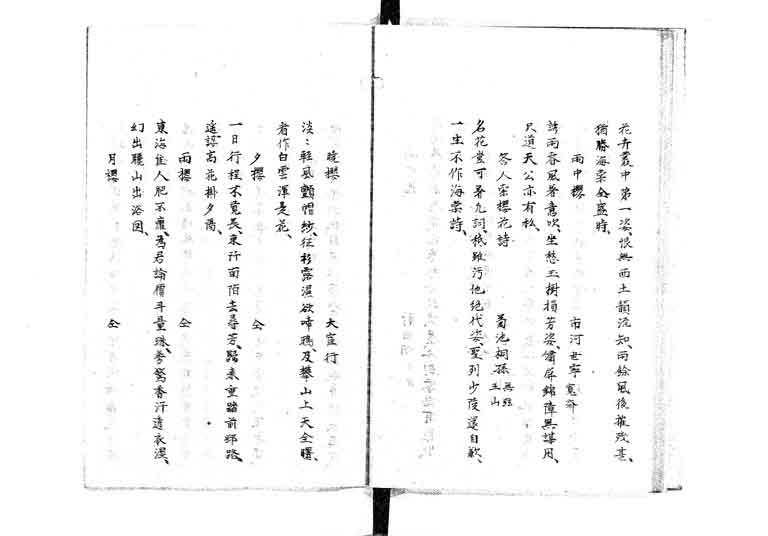 花卉叢中第一姿、恨無西土韻流知、雨餘風後摧残甚、
猶勝海棠全盛時、
雨中櫻 市河世寧寛斎
誘雨春風著意吹、坐愁玉樹損芳姿、繡屏錦障無謀用、
只道天公亦有私
答人索櫻花詩 菊池桐孫無絃五山
名花豈可著凡詞、秪雖汚他絶代姿、聖列少陵還自歉、
一生不作海棠詩、
暁櫻 大窪行
淡〻軽風颭帽紗、征衫露濕欲啼鴉、及攀山上天全曙、
看作白雲渾是花、
夕櫻 仝
一日行程不覚長、東阡南陌去尋芳、帰来重踏前邨路、
遙認高花掛夕陽、
雨櫻 仝
東海佳人肥不癯、為君論價斗量珠、夢驚香汗透衣濕、
幻出驪山出浴図、
月櫻 仝